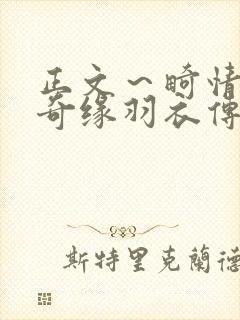 正文～畸情
奇缘羽衣傳
斯特里克蘭德